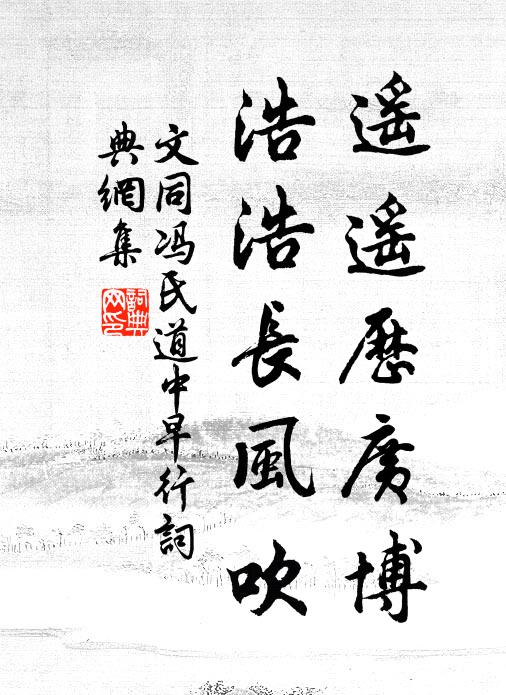 遥遥歷廣博
浩浩長風吹
文同冯氏道中早行詞
典網集
詞典網印